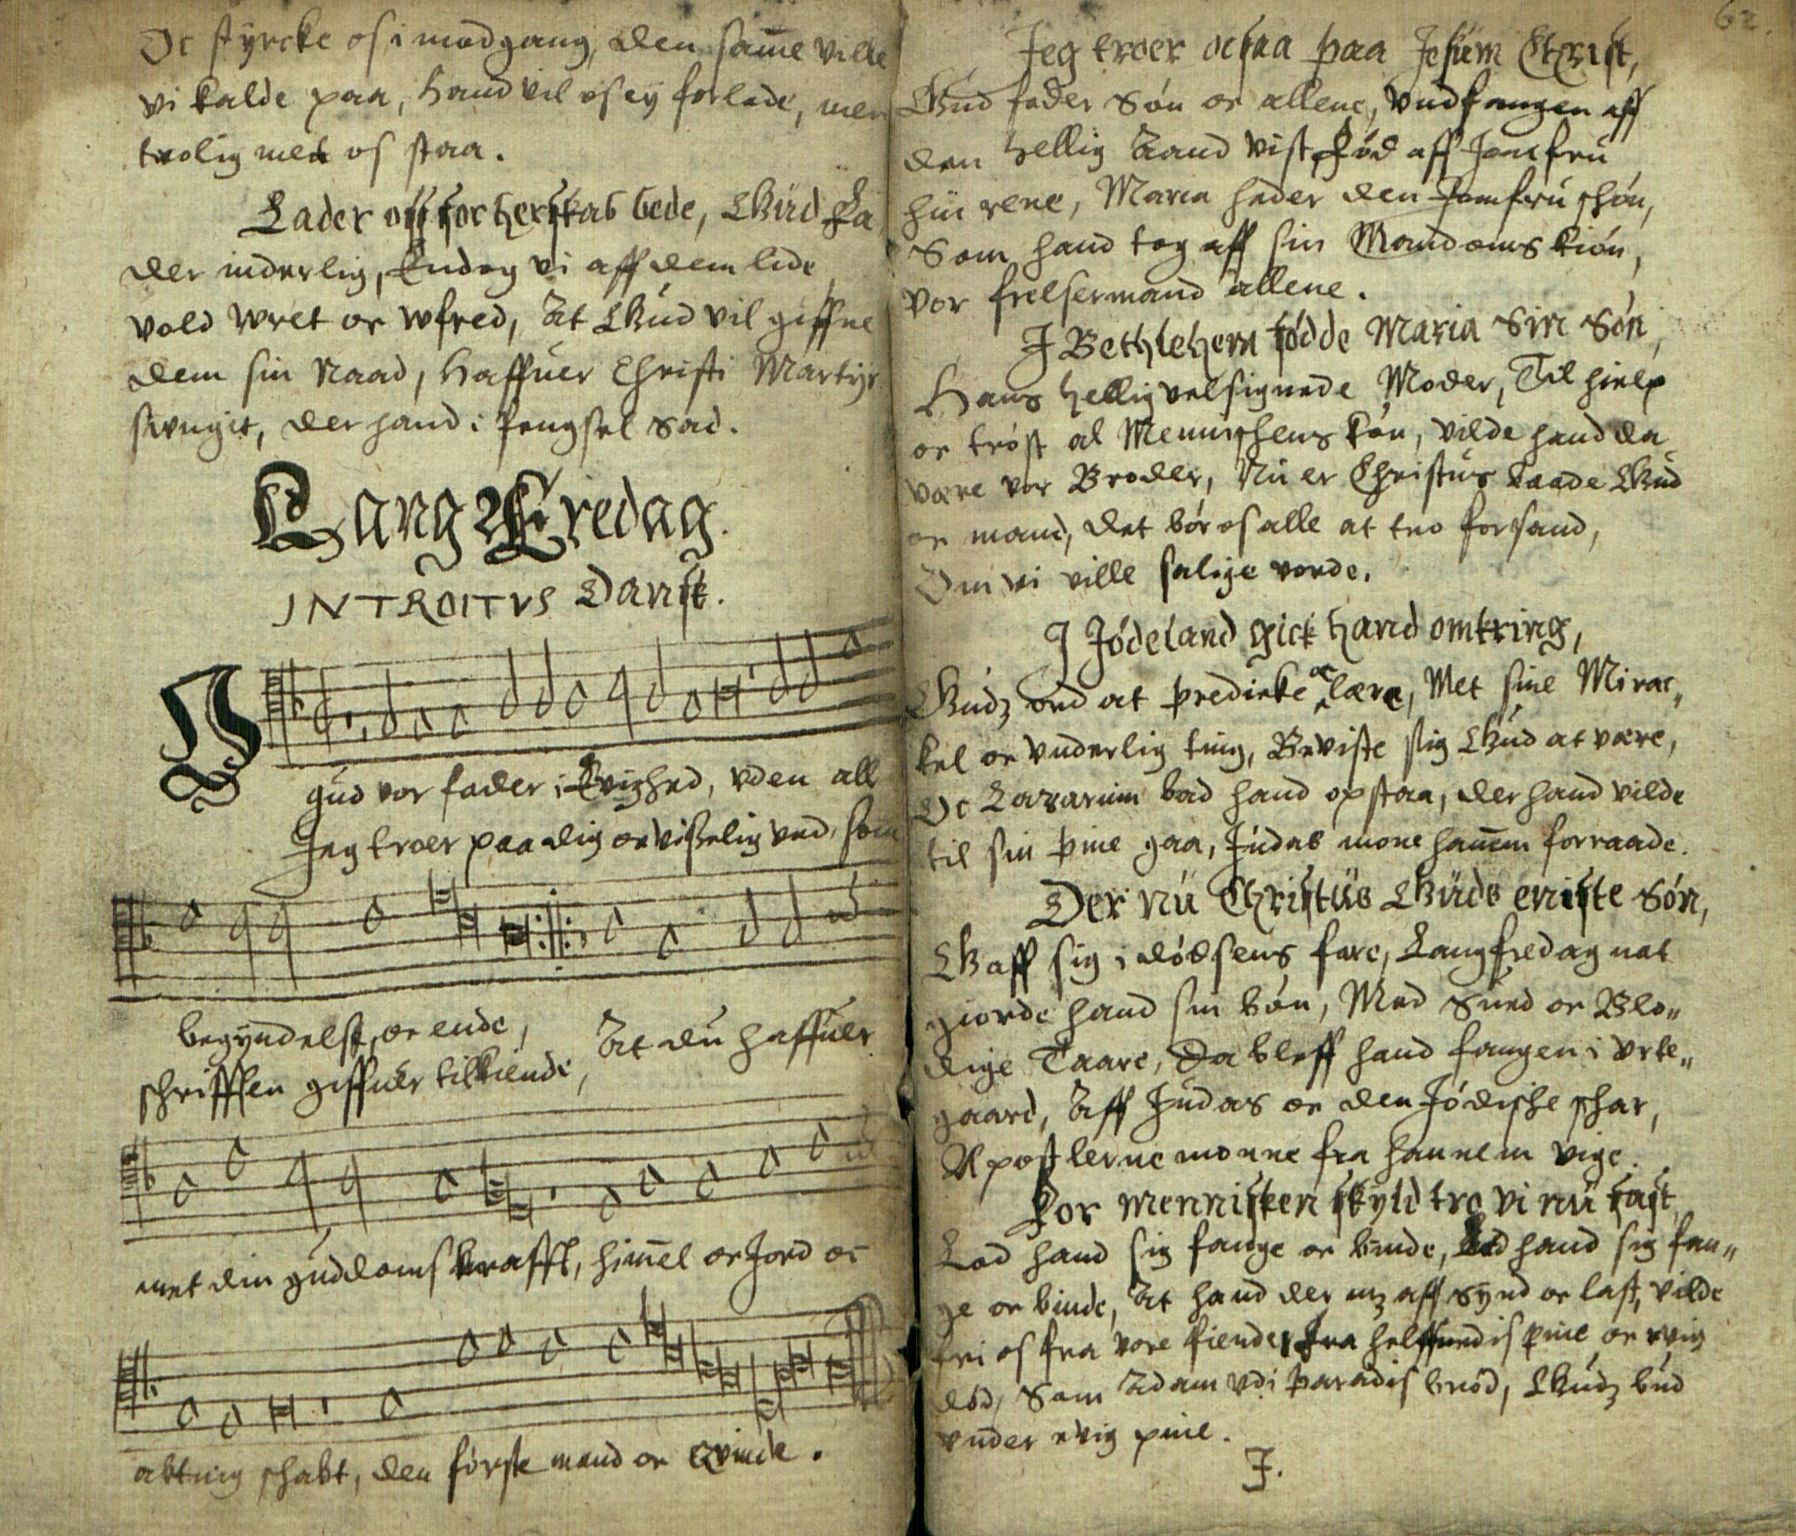 Oc styrcke os i modgang, den sam̅e ville
vi kalde paa, hand vil os ey forlade, men
trolig med os staa.
Lader oss for herskab bede, Gud Fa
der inderlig, Endog vi aff dem lide
vold wret oc wfred, At Gud vil giffue
dem sin Naad, Haffuer Christi Martyr
siungit, der hand i fengsel sad.
Lang Fredag.
INTROITVS Dansk.
O
gud vor fader i Evighed, vden all
Jeg troer paa dig oc visselig ved, som
begyndelse, oc ende,
schrifften giffuer tilkiende, At du haffuer
met din guddoms krafft, him̅el oc Jord oc
alting skabt, den første mand oc Qvinde.
62.
Jeg troer ocsaa paa Jesum Christ,
Gud fader Søn oc allene, vndfangen aff
den Hellig Aand vist, Fød aff Jomfru
hin rene, Maria heder den Jomfru schøn,
Som hand tog aff sin Mandoms kiøn,
vor frelsermand allene.
I Bethlehem fødde Maria Sin Søn,
Hans hellig velsignede Moder, Til hielp
oc trøst al Mennischens køn, vilde hand da
være vor Broder, Nu er Christus baade Gud
oc mand, det bør os alle at tro for sand,
Om vi ville salige vorde.
I Jødeland gick hand omkring,
Gudz ord at predicke oc lære, Met sine Mirac„
kel oc vnderlig ting, Beviste sig Gud at være,
Oc Lazarum bad hand opstaa, der hand vilde
til sin pine gaa, Judas mone han̅em forraade.
Der nu Christus Guds eniste Søn,
Gaff sig i dødsens fare, Langfredag nat
giorde hand sin bøn, Med Sued oc Blo„
dige Taare, Da bleff hand fangen i vrte„
gaard, Aff Judas oc den Jødische schar,
Apostlerne monne fra hannem vige.
For mennisken skyld tro vi nu fast,
Lod hand sig fange oc binde, Lod hand sig fan„
ge oc binde, At hand der mz aff synd oc last, vilde
fri os fra vore fiender, Fra helffuedis pine oc evig
død, Som Adam vdi Paradis brød, Gudz bud
vnder evig pine.
I.